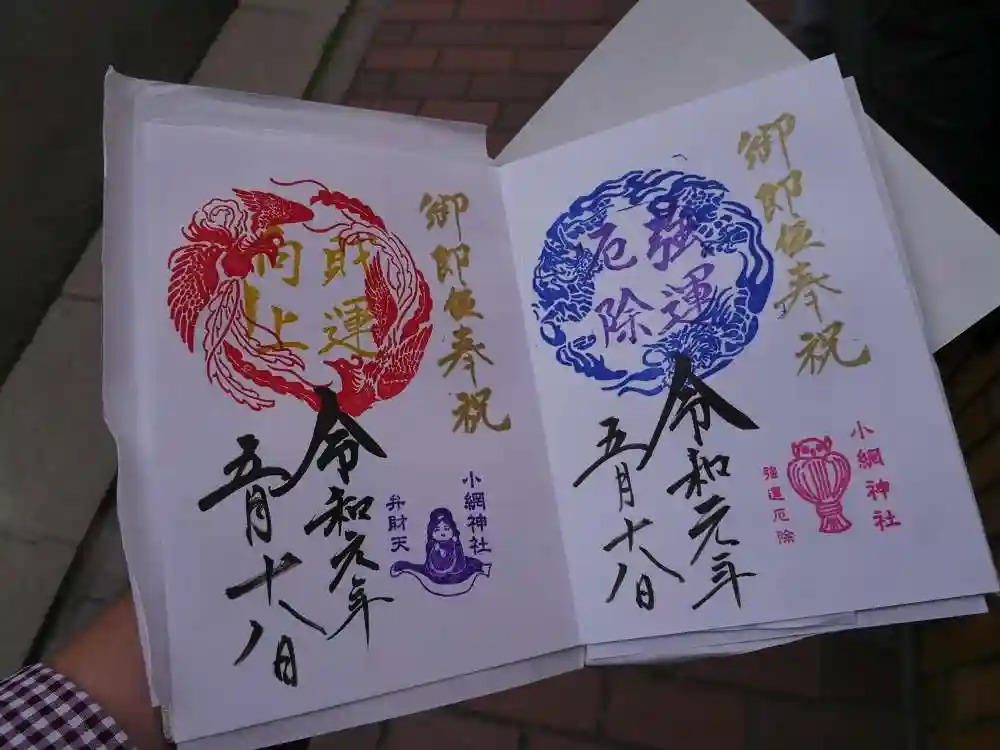 御即位奉祝
財運
向上
令和元年
五月十八日
小網神社
弁財天
御即位奉祝
強運
厄除
令和元年
五月十八日
小網神社
強運厄除